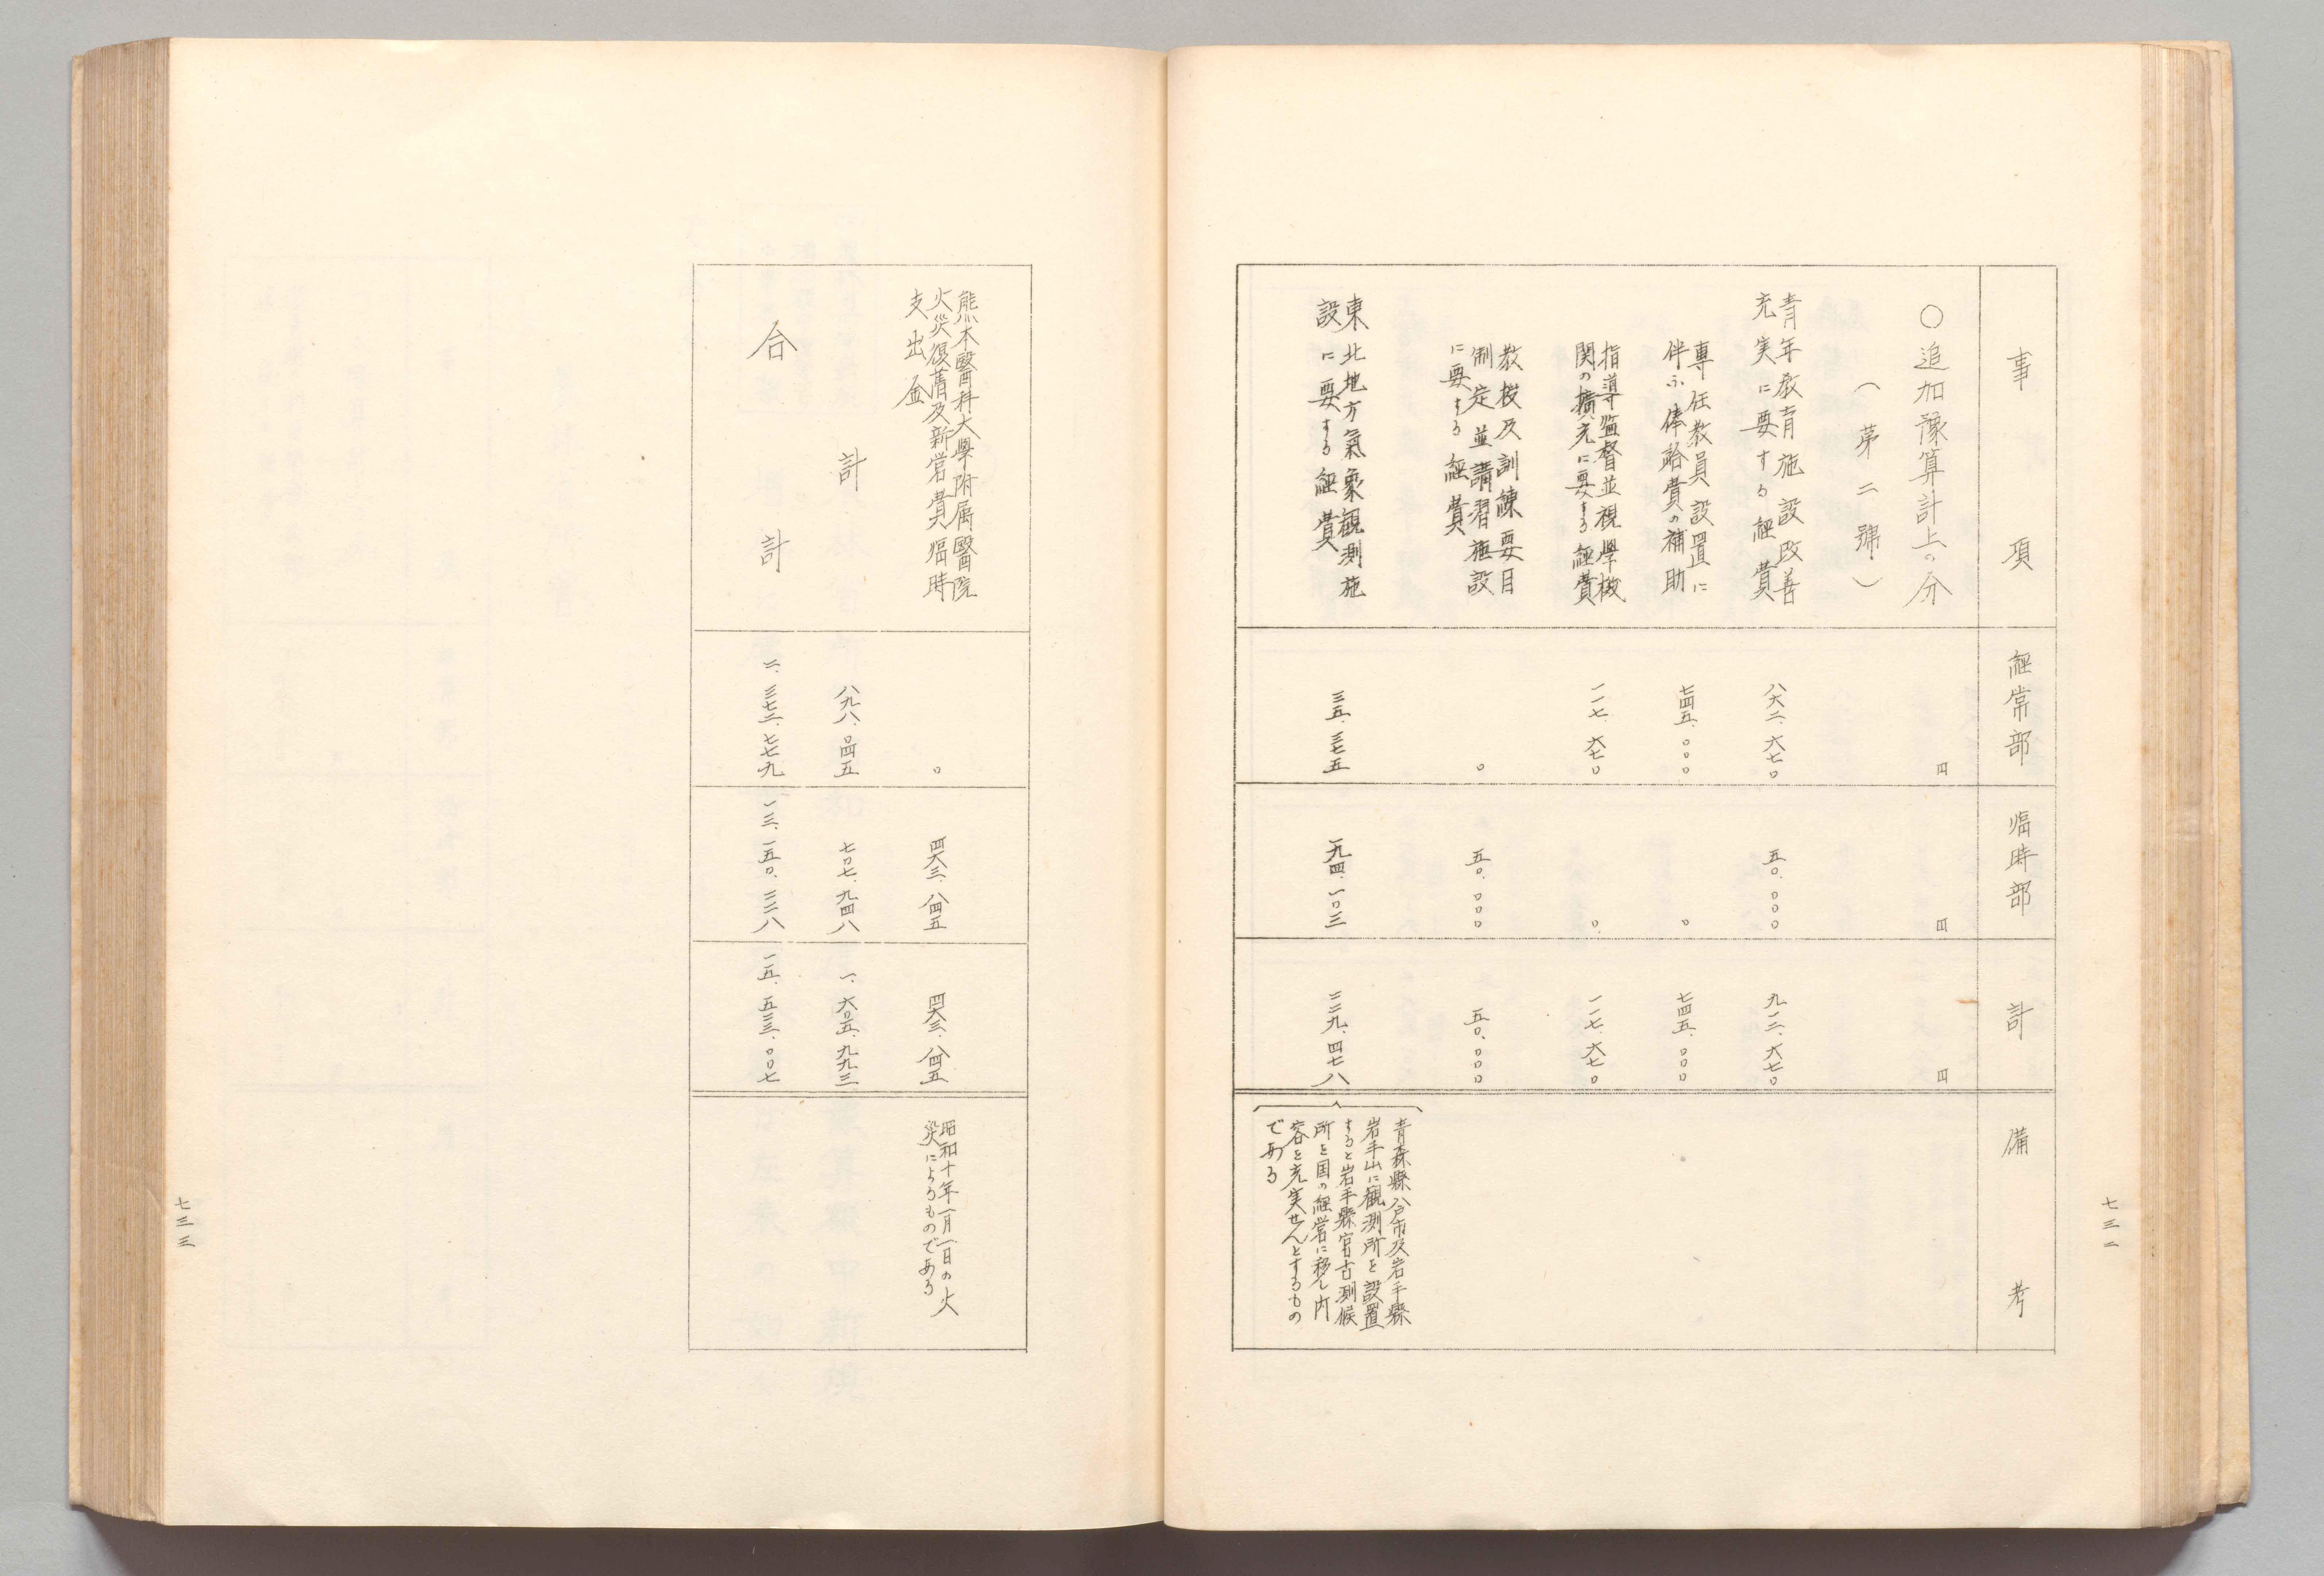 事項
経常部
臨時部
計
備考
〇追加豫算計上の分
円
円
円
(第二號)
青年教育施設改善
充実に要する経費
八六二、六七〇
五〇、〇〇〇
九一二、六七〇
専任教員設置に
伴ふ俸給費の補助
七四五、〇〇〇
〇
七四五、〇〇〇
指導監督並視學機
関の擴充に要する経費
一一七、六七〇
〇
一一七、六七〇
教授及訓練要目
制定並講習施設
に要する経費
〇
五〇、〇〇〇
五〇、〇〇〇
東北地方氣象観測施
設に要する経費
三五、三七五
一九四、一〇三
二二九、四七八
青森縣八戸市及岩手縣
岩手山に観測所を設置
すると岩手縣宮古測候
所を国の経営に移し内
容を充実せんとするもの
である
七三二
熊本醫科大學附属醫院
火災復舊及新営費臨時
支出金
〇
四六三、八四五
四六三、八四五
昭和十年一月一日の火
災によるものである
計
八九八、〇四五
七〇七、九四八
一、六〇五、九九三
合計
二、三七二、七七九
一三、一五〇、二二八
一五、五二三、〇〇七
七三三